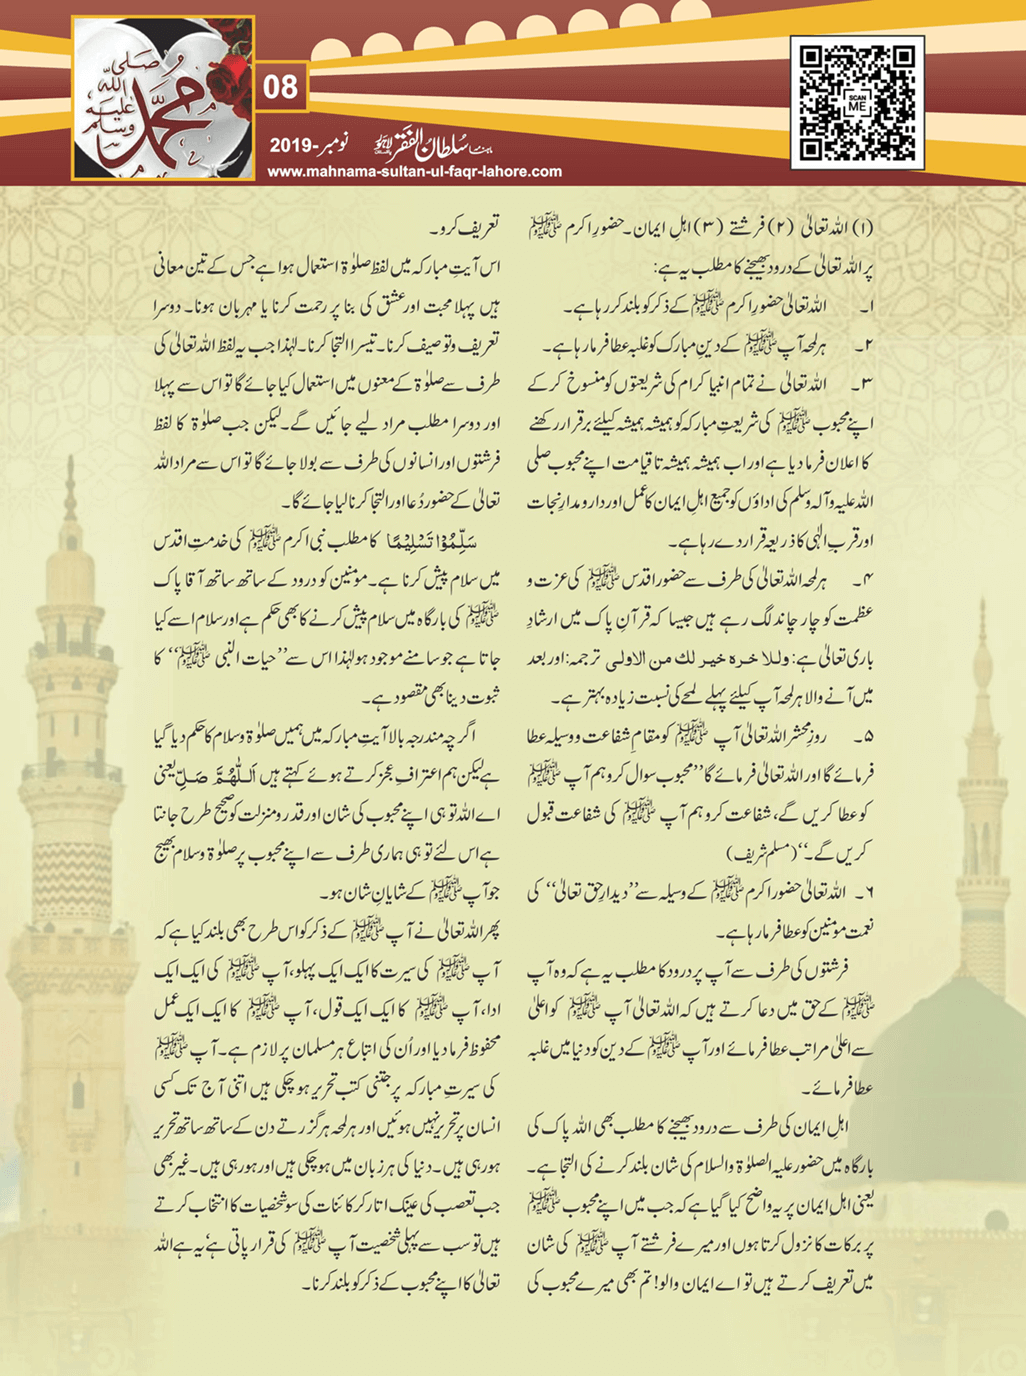 صلی
اللہ
علیہ
وسلم
محمد
08
SCAN
ME
ماہنامہ سلطان الفقر لاہور نومبر-2019
www.mahnama-sultan-ul-faqr-lahore.com
(۱) اللہ تعالیٰ (۲) فرشتے (۳) اہلِ ایمان۔ حضورِ اکرم ﷺ
پر اللہ تعالیٰ کے درود بھیجنے کا مطلب یہ ہے:
۱۔ اللہ تعالیٰ حضورِ اکرم ﷺ کے ذکر کو بلند کر رہا ہے۔
۲۔ ہر لمحہ آپ ﷺ کے دینِ مبارک کو غلبہ عطا فرما رہا ہے۔
۳۔ اللہ تعالیٰ نے تمام انبیا کرام کی شریعتوں کو منسوخ کر کے
اپنے محبوب ﷺ کی شریعتِ مبارکہ کو ہمیشہ ہمیشہ کیلئے برقرار رکھنے
کا اعلان فرما دیا ہے اور اب ہمیشہ ہمیشہ تا قیامت اپنے محبوب صلی
اللہ علیہ وآلہ وسلم کی اداؤں کو جمیع اہلِ ایمان کا عمل اور دارو مدارِ نجات
اور قربِ الٰہی کا ذریعہ قرار دے رہا ہے۔
۴۔ ہر لمحہ اللہ تعالیٰ کی طرف سے حضور اقدس ﷺ کی عزت و
عظمت کو چار چاند لگ رہے ہیں جیسا کہ قرآنِ پاک میں ارشادِ
باری تعالیٰ ہے: وللاخرہ خیر لك من الاولی ترجمہ: اور بعد
میں آنے والا ہر لمحہ آپ کیلئے پہلے لمحے کی نسبت زیادہ بہتر ہے۔
۵۔ روزِ محشر اللہ تعالیٰ آپ ﷺ کو مقامِ شفاعت و وسیلہ عطا
فرمائے گا اور اللہ تعالیٰ فرمائے گا ’’محبوب سوال کرو ہم آپ ﷺ
کو عطا کریں گے، شفاعت کرو ہم آپ ﷺ کی شفاعت قبول
کریں گے۔‘‘ (مسلم شریف)
۶۔ اللہ تعالیٰ حضور اکرم ﷺ کے وسیلہ سے ’’دیدارِ حق تعالیٰ‘‘ کی
نعمت مومنین کو عطا فرما رہا ہے۔
فرشتوں کی طرف سے آپ پر درود کا مطلب یہ ہے کہ وہ آپ
ﷺ کے حق میں دعا کرتے ہیں کہ اللہ تعالیٰ آپ ﷺ کو اعلیٰ
سے اعلیٰ مراتب عطا فرمائے اور آپ ﷺ کے دین کو دنیا میں غلبہ
عطا فرمائے۔
اہلِ ایمان کی طرف سے درود بھیجنے کا مطلب بھی اللہ پاک کی
بارگاہ میں حضور علیہ الصلوٰۃ والسلام کی شان بلند کرنے کی التجا ہے۔
یعنی اہلِ ایمان پر یہ واضح کیا گیا ہے کہ جب میں اپنے محبوب ﷺ
پر برکات کا نزول کرتا ہوں اور میرے فرشتے آپ ﷺ کی شان
میں تعریف کرتے ہیں تو اے ایمان والو! تم بھی میرے محبوب کی
تعریف کرو۔
اس آیتِ مبارکہ میں لفظ صلوٰۃ استعمال ہوا ہے جس کے تین معانی
ہیں پہلا محبت اور عشق کی بنا پر رحمت کرنا یا مہربان ہونا۔ دوسرا
تعریف و توصیف کرنا۔ تیسرا التجا کرنا۔ لہٰذا جب یہ لفظ اللہ تعالیٰ کی
طرف سے صلوٰۃ کے معنوں میں استعمال کیا جائے گا تو اس سے پہلا
اور دوسرا مطلب مراد لیے جائیں گے۔ لیکن جب صلوٰۃ کا لفظ
فرشتوں اور انسانوں کی طرف سے بولا جائے گا تو اس سے مراد اللہ
تعالیٰ کے حضور دُعا اور التجا کرنا لیا جائے گا۔
سَلِّمُوْا تَسْلِیْمًا کا مطلب نبی اکرم ﷺ کی خدمتِ اقدس
میں سلام پیش کرنا ہے۔ مومنین کو درود کے ساتھ ساتھ آقا پاک
ﷺ کی بارگاہ میں سلام پیش کرنے کا بھی حکم ہے اور سلام اسے کیا
جاتا ہے جو سامنے موجود ہو لہٰذا اس سے ’’حیات النبی ﷺ‘‘ کا
ثبوت دینا بھی مقصود ہے۔
اگرچہ مندرجہ بالا آیتِ مبارکہ میں ہمیں صلوٰۃ و سلام کا حکم دیا گیا
ہے لیکن ہم اعترافِ عجز کرتے ہوئے کہتے ہیں اَللّٰھُمَّ صَلِّ یعنی
اے اللہ تو ہی اپنے محبوب کی شان اور قدر و منزلت کو صحیح طرح جانتا
ہے اس لئے تو ہی ہماری طرف سے اپنے محبوب پر صلوٰۃ و سلام بھیج
جو آپ ﷺ کے شایانِ شان ہو۔
پھر اللہ تعالیٰ نے آپ ﷺ کے ذکر کو اس طرح بھی بلند کیا ہے کہ
آپ ﷺ کی سیرت کا ایک ایک پہلو، آپ ﷺ کی ایک ایک
ادا، آپ ﷺ کا ایک ایک قول، آپ ﷺ کا ایک ایک عمل
محفوظ فرما دیا اور اُن کی اتباع ہر مسلمان پر لازم ہے۔ آپ ﷺ
کی سیرتِ مبارکہ پر جتنی کتب تحریر ہو چکی ہیں اتنی آج تک کسی
انسان پر تحریر نہیں ہوئیں اور ہر لمحہ ہر گزرتے دن کے ساتھ ساتھ تحریر
ہو رہی ہیں۔ دنیا کی ہر زبان میں ہو چکی ہیں اور ہو رہی ہیں۔ غیر بھی
جب تعصب کی عینک اتار کر کائنات کی سو شخصیات کا انتخاب کرتے
ہیں تو سب سے پہلی شخصیت آپ ﷺ کی قرار پاتی ہے‘ یہ ہے اللہ
تعالیٰ کا اپنے محبوب کے ذکر کو بلند کرنا۔